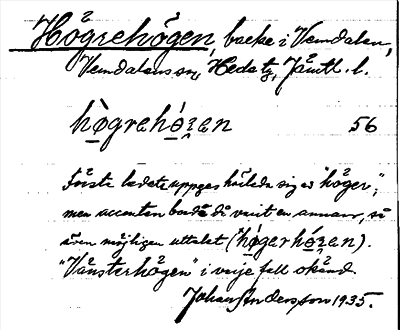 Högrehögen, backe i Vemdalen,
Vemdalens sn, Hede tg, Jämtl. l.
hògrehó̱ɀen 56
Första ledet uppges härleda sig av "höger",
men accenten borde då varit en annan, så
även möjligen uttalet (hó̱gerhó̱ɀen).
"Vänsterhögen" i varje fall okänd.
Johan Andersson 1935.